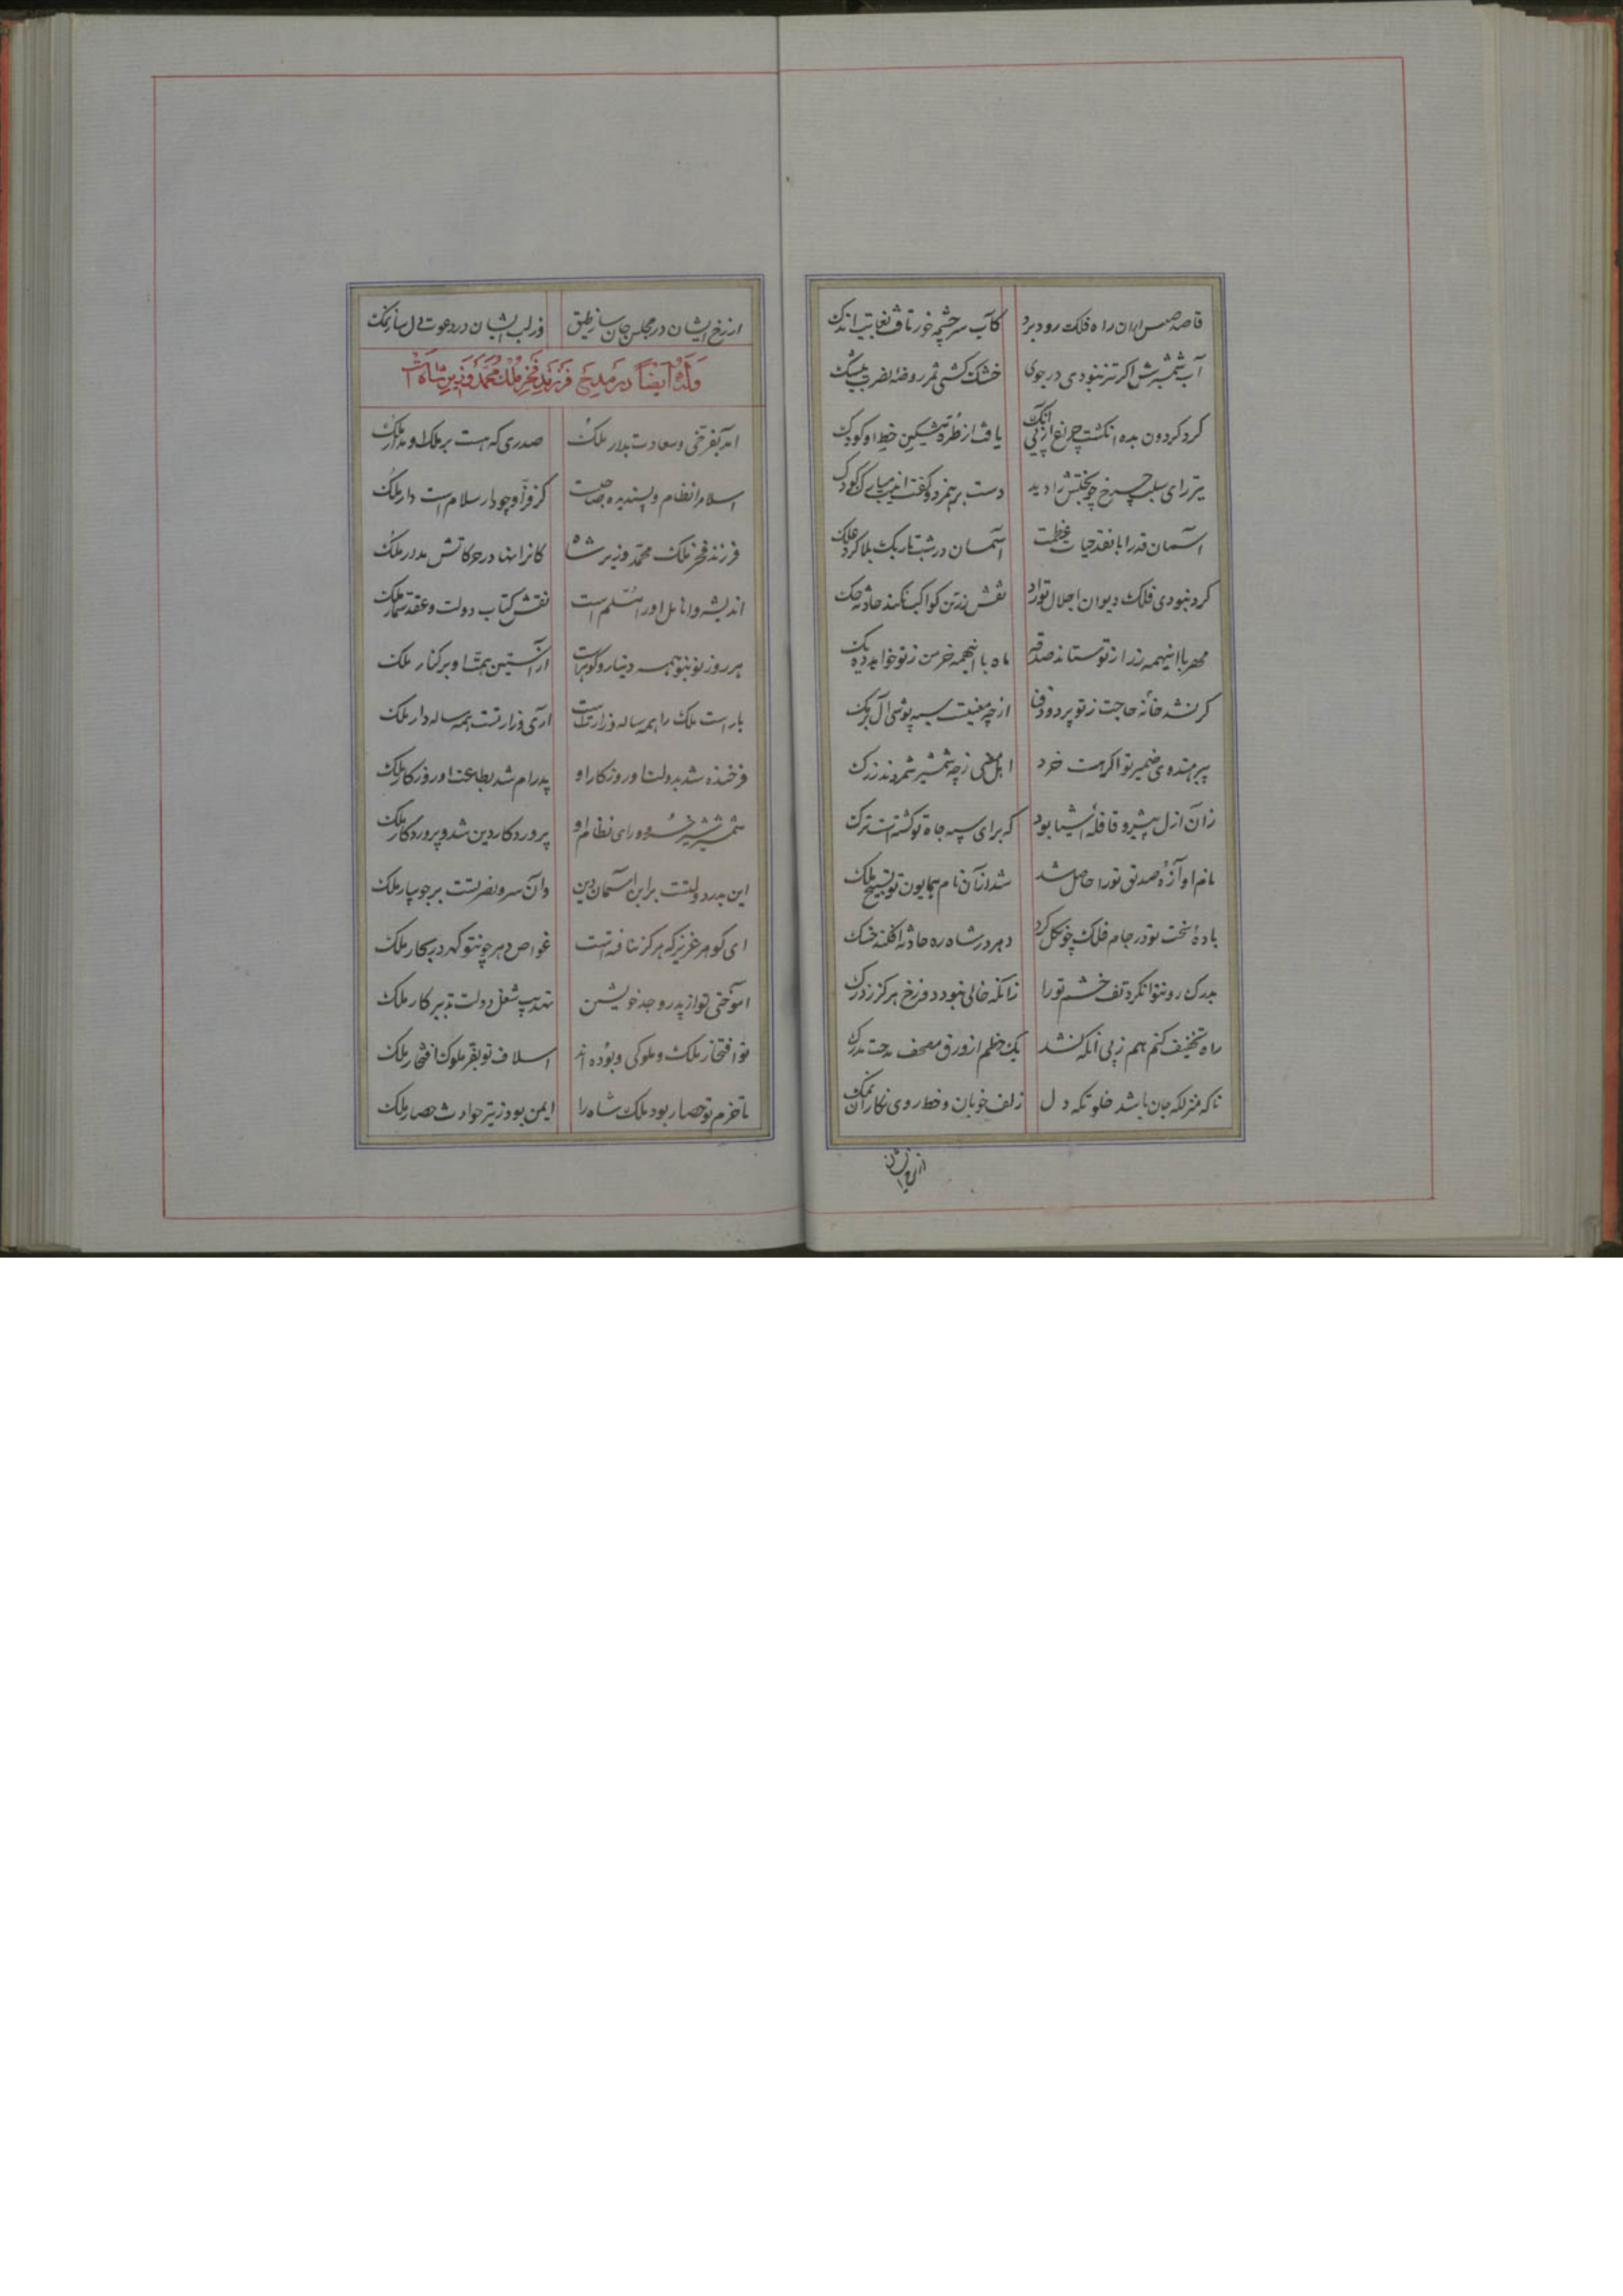 قاصد راه فلک رود برد کآب سر چشمه خور تافت
آب شمشیرش اگر تیز نبودی در جوی خشک کشتی ثمر روضهٔ نصرت بیشک
کرد گردون بده انگشت چراغ از پی آنک یافت از طره مشکین خط او کودک
تیر رای سلب چرخ چو بختش را دید دست بر هم زد و گفت
آسمان قدرا با نقد حیات آسمان در شب تاریک بلا کرد
گر نبودی فلک دیوان اجلال تو را نقش زرین کواکب کند حادثه حک
مهر با اینهمه زر از تو ستاند صدقه ماه با اینهمه خرمن ز تو خواهد ده یک
گر نشد خانه حاجت ز تو پر دود از چه معنیست سیه پوشی آل برمک
پیر هندوی ضمیر تو اگر هست خرد اهل معنی ز چه شمشیر شمردند
زان ازل پیشرو قافله اشیا بود که برای سپه جاه تو گشته است
نام آوازه صدق تو را حاصل شد شد از آن نام همایون تو تسبیح ملک
باده بخت تو در جام فلک چون گل کرد دهر در شاه ره حادثه افکند خسک
بدرک رو نتوانکرد تف خشم تو را زانکه خالی نبود دوزخ هرگز ز درک
راه تخفیف کنم هم ز پی آنکه نشد یک خطم از ورق مصحف مدحت مدرک
تا که منزلگه جان باشد خلوتگه دل زلف خوبان و خط روی نگاران نمک
از رخ ایشان
از رخ ایشان در مجلس جان ساز طبق وز لب ایشان در دعوت دل ساز نمک
وله ایضاً در مدیح فرزند فخر ملک محمد وزیر شاه است
آمد بفرخی و سعادت بدار ملک صدری که هست بر ملک او مدار ملک
اسلام را نظام و پسندیده صاحبیست کز فر او چو دار سلام است دار ملک
فرزند فخر ملک محمد وزیر شاه در حرکاتش مدار ملک
اندیشه و انامل او را مسلم است نقش کتاب دولت و عقد شمار ملک
هر روز نو بنو همه دینار و گوهر است از آستین همت او بر کنار ملک
یار است ملک را همه ساله وزارتت آری وزارتست همه ساله دار ملک
فرخنده شد بدولت او روزگار او پدرام شد بطاعت او روزگار ملک
شمشیر خسرو و رای نظام او پروردگار دین شد و پروردگار ملک
این بدر دولتست بر این آسمان دین وان سرو نصرتست بر جویبار ملک
ای گوهر عزیز که هرگز نیافته است غواص دهر چونتو گهر در بحار ملک
آموختی تو از پدر و جد خویشتن تهذیب شغل دولت و تدبیر کار ملک
تو افتخار ملک و ملوکی و بوده اند اسلاف تو بفر ملوک افتخار ملک
تا حزم تو حصار بود ملک شاه را ایمن بود ز تیر حوادث حصار ملک